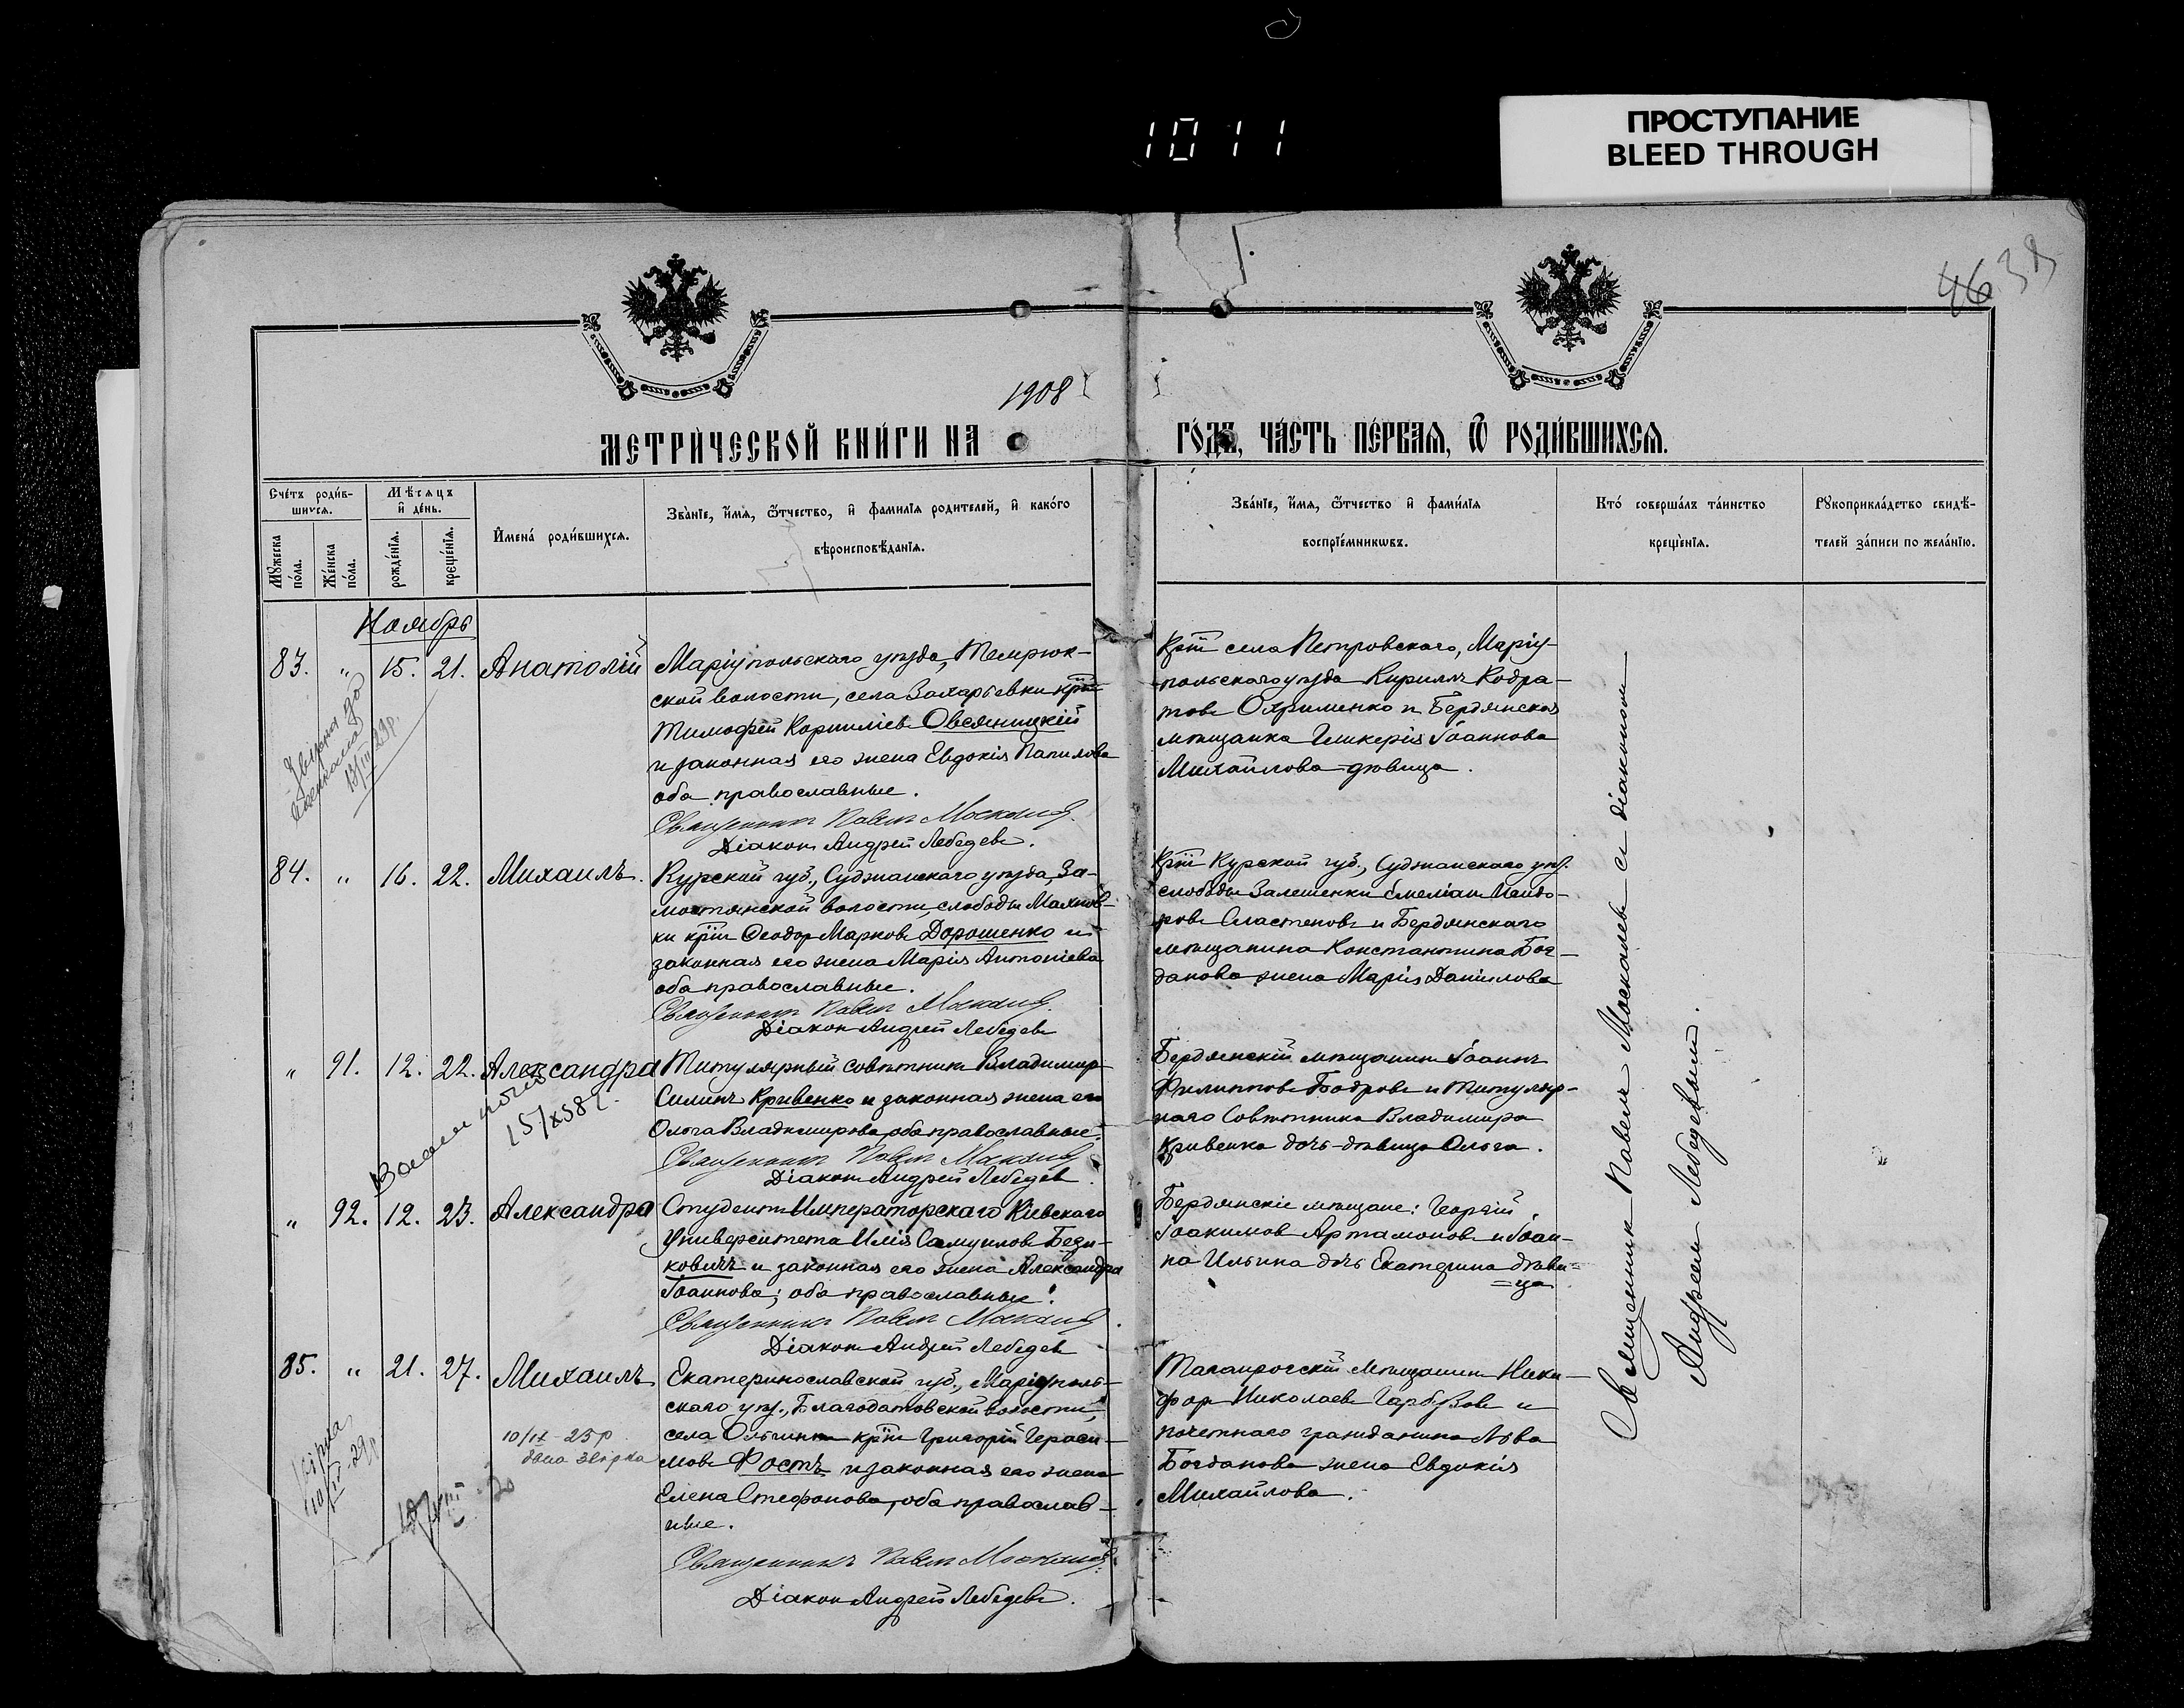 1011
ПРОСТУПАНИЕ
BLEED THROUGH
46
1908
МЕТРИЧЕСКОЙ КНИГИ НА
ГОДЪ, ЧАСТЬ ПЕРВАЯ, Ѿ РОДИВШИХСЯ.
Счетъ родив-
шихся.
Мѣсяцъ
и день.
Мужеска пола.
Женска пола.
рожденія.
крещенія.
Имена родившихся.
Званіе, имя, ѿчество, и фамилія родителей, и какого
вѣроисповѣданія.
Званіе, имя, ѿчество и фамилія
воспріемниковъ.
Кто совершалъ таинство
крещенія.
Рукоприкладство свидѣ-
телей записи по желанію.
Ноябрь
83. " 15. 21. Анатолій
Маріупольскаго уѣзда, Темрюк-
ской волости, села Захарьевки крт
Тимофей Корниліевъ Овсяницкій
и законная его жена Евдокія
оба православные.
Священникъ Павелъ Москалевъ.
Діаконъ Андрей Лебедевъ.
Крт села Петровскаго, Маріу-
польскаго уѣзда Кириллъ Кодра-
товъ Охрименко и Бердянская
мѣщанка Гликерія Іоаннова
Михайлова дѣвица.
84. " 16. 22. Михаилъ.
Курской губ., Суджанскаго уѣзда, За-
мостянской волости, слободы Махнов-
ки крт Ѳеодоръ Марковъ Дорошенко и
законная его жена Марія Антоніева
оба православные.
Священникъ Павелъ Москалевъ.
Діаконъ Андрей Лебедевъ
Крт Курской губ., Суджанскаго уѣз.
слободы Залешенки Емеліанъ Исидо-
ровъ Сластеновъ и Бердянскаго
мѣщанина Константина Бог-
данова жена Марія Даніилова
" 91. 12. 22. Александра
Титулярный совѣтникъ Владимиръ
Силинъ Кривенко и законная жена его
Ольга Владимирова, оба православные.
Священникъ Павелъ Москалевъ
Діаконъ Андрей Лебедевъ
Бердянскій мѣщанинъ Іоаннъ
Филипповъ Бодровъ и Титуляр-
наго Совѣтника Владимира
Кривенка дочь-дѣвица Ольга.
" 92. 12. 23. Александра
Студентъ Императорскаго Кіевскаго
Университета Илія Самуиловъ Бези-
ковичъ и законная его жена Александра
Іоаннова; оба православные.
Священникъ Павелъ Москалевъ.
Діаконъ Андрей Лебедевъ
Бердянскіе мѣщане: Георгій
Іоакимовъ Артамоновъ и Іоан-
на Ильина дочь Екатерина дѣви=
=ца
85. " 21. 27. Михаилъ
Екатеринославской губ., Маріуполь-
скаго уѣз., Благодатовской волости,
села Ольгинки крт Григорій Гераси-
мовъ Фостъ и законная его жена
Елена Стефанова, оба православ-
ные.
Священникъ Павелъ Москалевъ.
Діаконъ Андрей Лебедевъ.
Таганрогскій Мѣщанинъ Ники-
форъ Николаевъ Гарбузовъ и
почетнаго гражданина Льва
Богданова жена Евдокія
Михайлова.
10/IX-25р
дана звірка
Священникъ Павелъ Москалевъ съ діакономъ
Андреемъ Лебедевымъ.